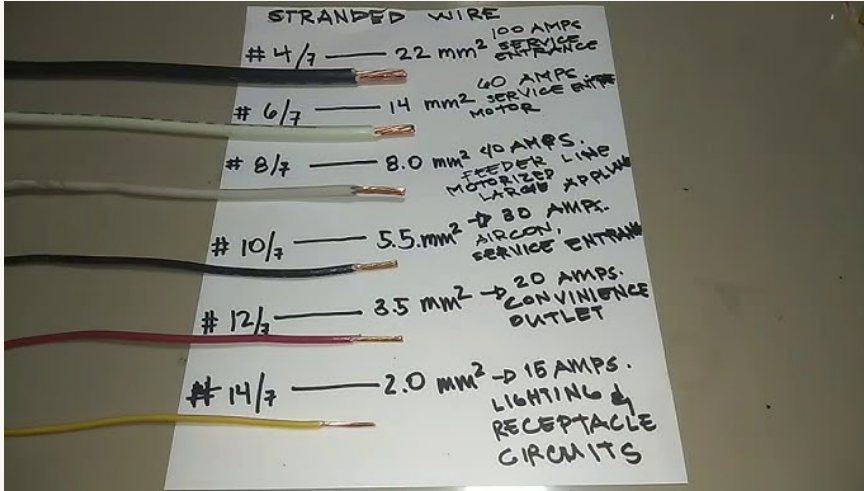 STRANDED WIRE
# 4/7 — 22 mm² 100 AMPS
SERVICE
ENTRANCE
# 6/7 — 14 mm² 60 AMPS
SERVICE
MOTOR
# 8/7 — 8.0 mm² 40 AMPS.
FEEDER LINE
MOTORIZED
LARGE
# 10/7 — 5.5 mm² → 30 AMPS.
AIRCON,
SERVICE
# 12/7 — 3.5 mm² → 20 AMPS.
CONVINIENCE
OUTLET
# 14/7 — 2.0 mm² → 15 AMPS.
LIGHTING &
RECEPTACLE
CIRCUITS